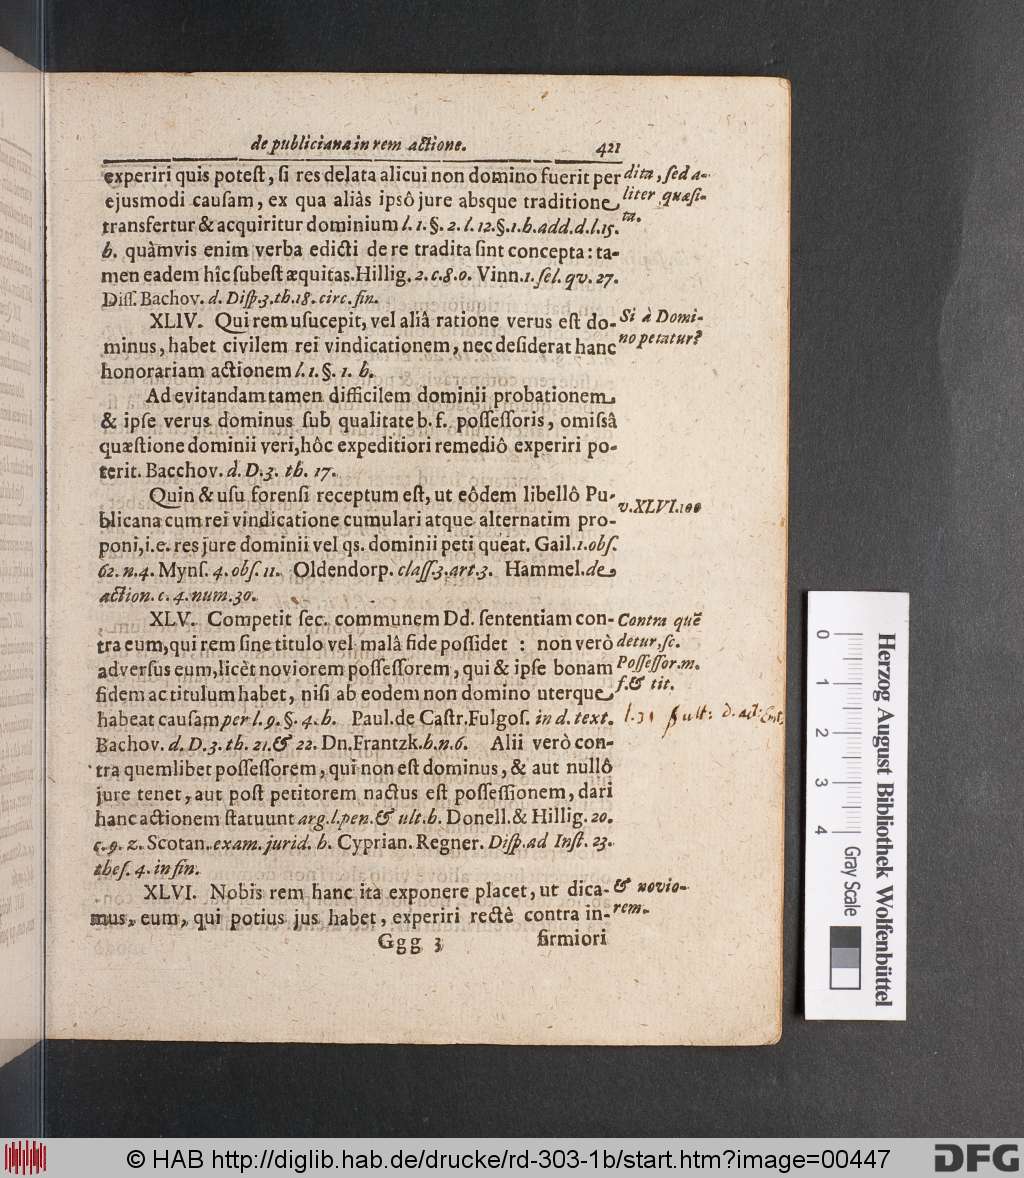 de publiciana in rem actione. 421
experiri quis potest, si res delata alicui non domino fuerit per
ejusmodi causam, ex qua aliàs ipsô jure absque traditione
transfertur & acquiritur dominium l. 1. §. 2. l. 12. §. 1. h. add. d. l. 15.
h. quàmvis enim verba edicti de re tradita sint concepta: ta-
men eadem hîc subest æquitas. Hillig. 2. c. 8. o. Vinn. 1. sel. qv. 27.
Diss. Bachov. d. Disp. 3. th. 18. circ. fin.
dita, sed a-
liter quæsi-
ta.
XLIV. Qui rem usucepit, vel aliâ ratione verus est do-
minus, habet civilem rei vindicationem, nec desiderat hanc
honorariam actionem l. 1. §. 1. h.
Si à Domi-
no petatur?
Ad evitandam tamen difficilem dominii probationem
& ipse verus dominus sub qualitate b. f. possessoris, omissâ
quæstione dominii veri, hôc expeditiori remediô experiri po-
terit. Bacchov. d. D. 3. th. 17.
Quin & usu forensi receptum est, ut eôdem libellô Pu-
blicana cum rei vindicatione cumulari atque alternatim pro-
poni, i.e. res jure dominii vel qs. dominii peti queat. Gail. 1. obs.
62. n. 4. Myns. 4. obs. 11. Oldendorp. class. 3. art. 3. Hammel. de
action. c. 4. num. 30.
v. XLVI. 100
XLV. Competit sec. communem Dd. sententiam con-
tra eum, qui rem sine titulo vel malâ fide possidet : non verò
adversus eum, licèt noviorem possessorem, qui & ipse bonam
fidem ac titulum habet, nisi ab eodem non domino uterque
habeat causam per l. 9. §. 4. h. Paul. de Castr. Fulgos. in d. text.
Bachov. d. D. 3. th. 21. & 22. Dn. Frantzk. h. n. 6. Alii verò con-
tra quemlibet possessorem, qui non est dominus, & aut nullô
jure tenet, aut post petitorem nactus est possessionem, dari
hanc actionem statuunt arg. l. pen. & ult. h. Donell. & Hillig. 20.
c. 9. z. Scotan. exam. jurid. h. Cyprian. Regner. Disp. ad Inst. 23.
thes. 4. in fin.
Contra quẽ
detur, sc.
Possessor. m.
f. & tit.
l. 31 ult: d. act: Emt.
XLVI. Nobis rem hanc ita exponere placet, ut dica-
mus, eum, qui potius jus habet, experiri rectè contra in-
& novio-
rem.
Ggg 3 firmiori
Herzog August Bibliothek Wolfenbüttel
0 1 2 3 4 Gray Scale
© HAB http://diglib.hab.de/drucke/rd-303-1b/start.htm?image=00447
DFG